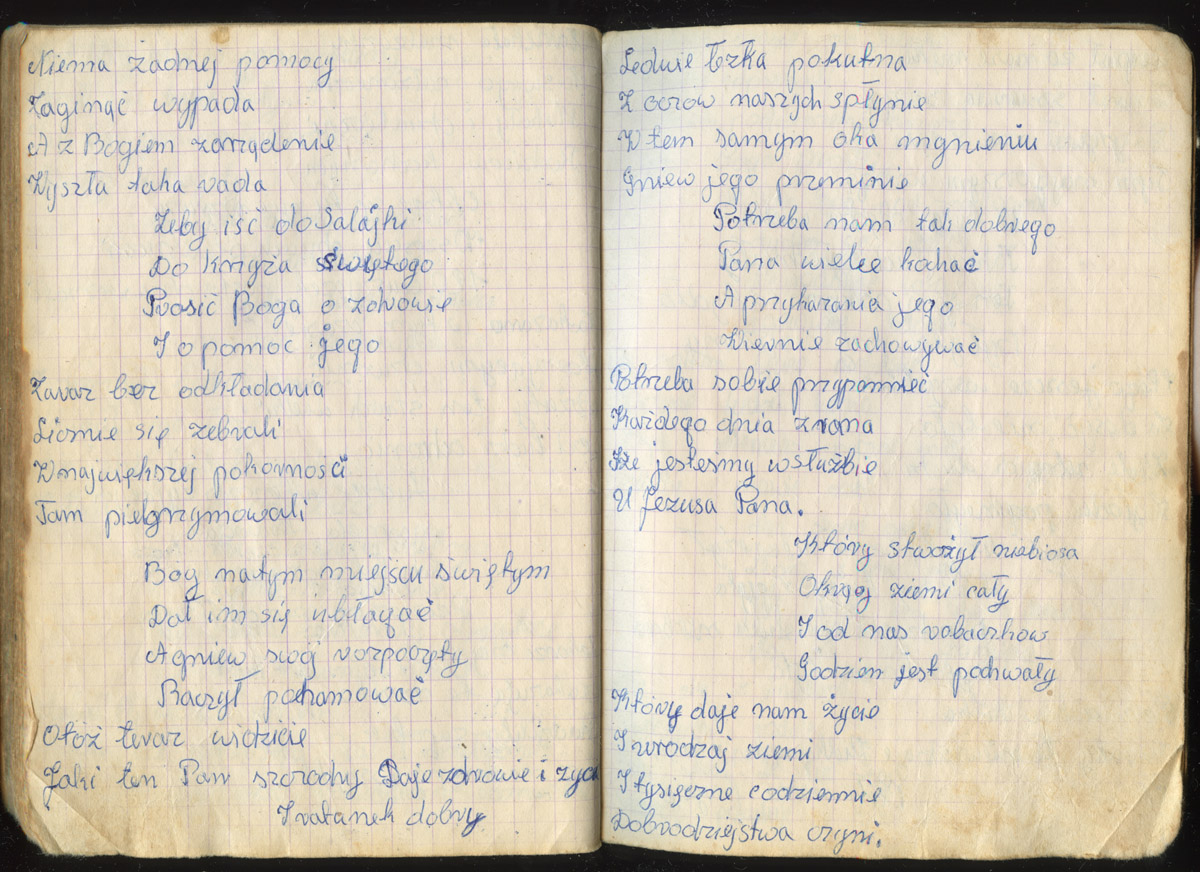 Niema żadnej pomocy
Zaginąć wypada
A z Bogiem zarządenie
Wyszła taka rada
Żeby iść do Salajki
Do krzyża świętego
Prosić Boga o zdrowie
I o pomoc jego
Zaraz bez odkładania
Licznie się zebrali
W największej pokorności
Tam pielgrzymowali
Bog natym miejscu świętym
Dał im się ubłagać
A gniew swój rozpoczęty
Raczył pohamować
Otóż teraz widzicie
Jaki ten Pan szczodry Daje zdrowie i życie
I ratunek dobry
Ledwie łzka pokutna
Z oczów naszych spłynie
W tem samym oka mgnieniu
Gniew jego przeminie
Potrzeba nam tak dobrego
Pana wielce kochać
A przykazania jego
Wiernie zachowywać
Potrzeba sobie przypomnieć
Każdego dnia zrana
Że jesteśmy w służbie
U Jezusa Pana.
Który stwożył niebiosa
Okręg ziemi cały
I od nas robaczków
Godzien jest pochwały
Który daje nam życie
I urodzaj ziemi
I tysięczne codziennie
Dobrodziejstwa czyni.